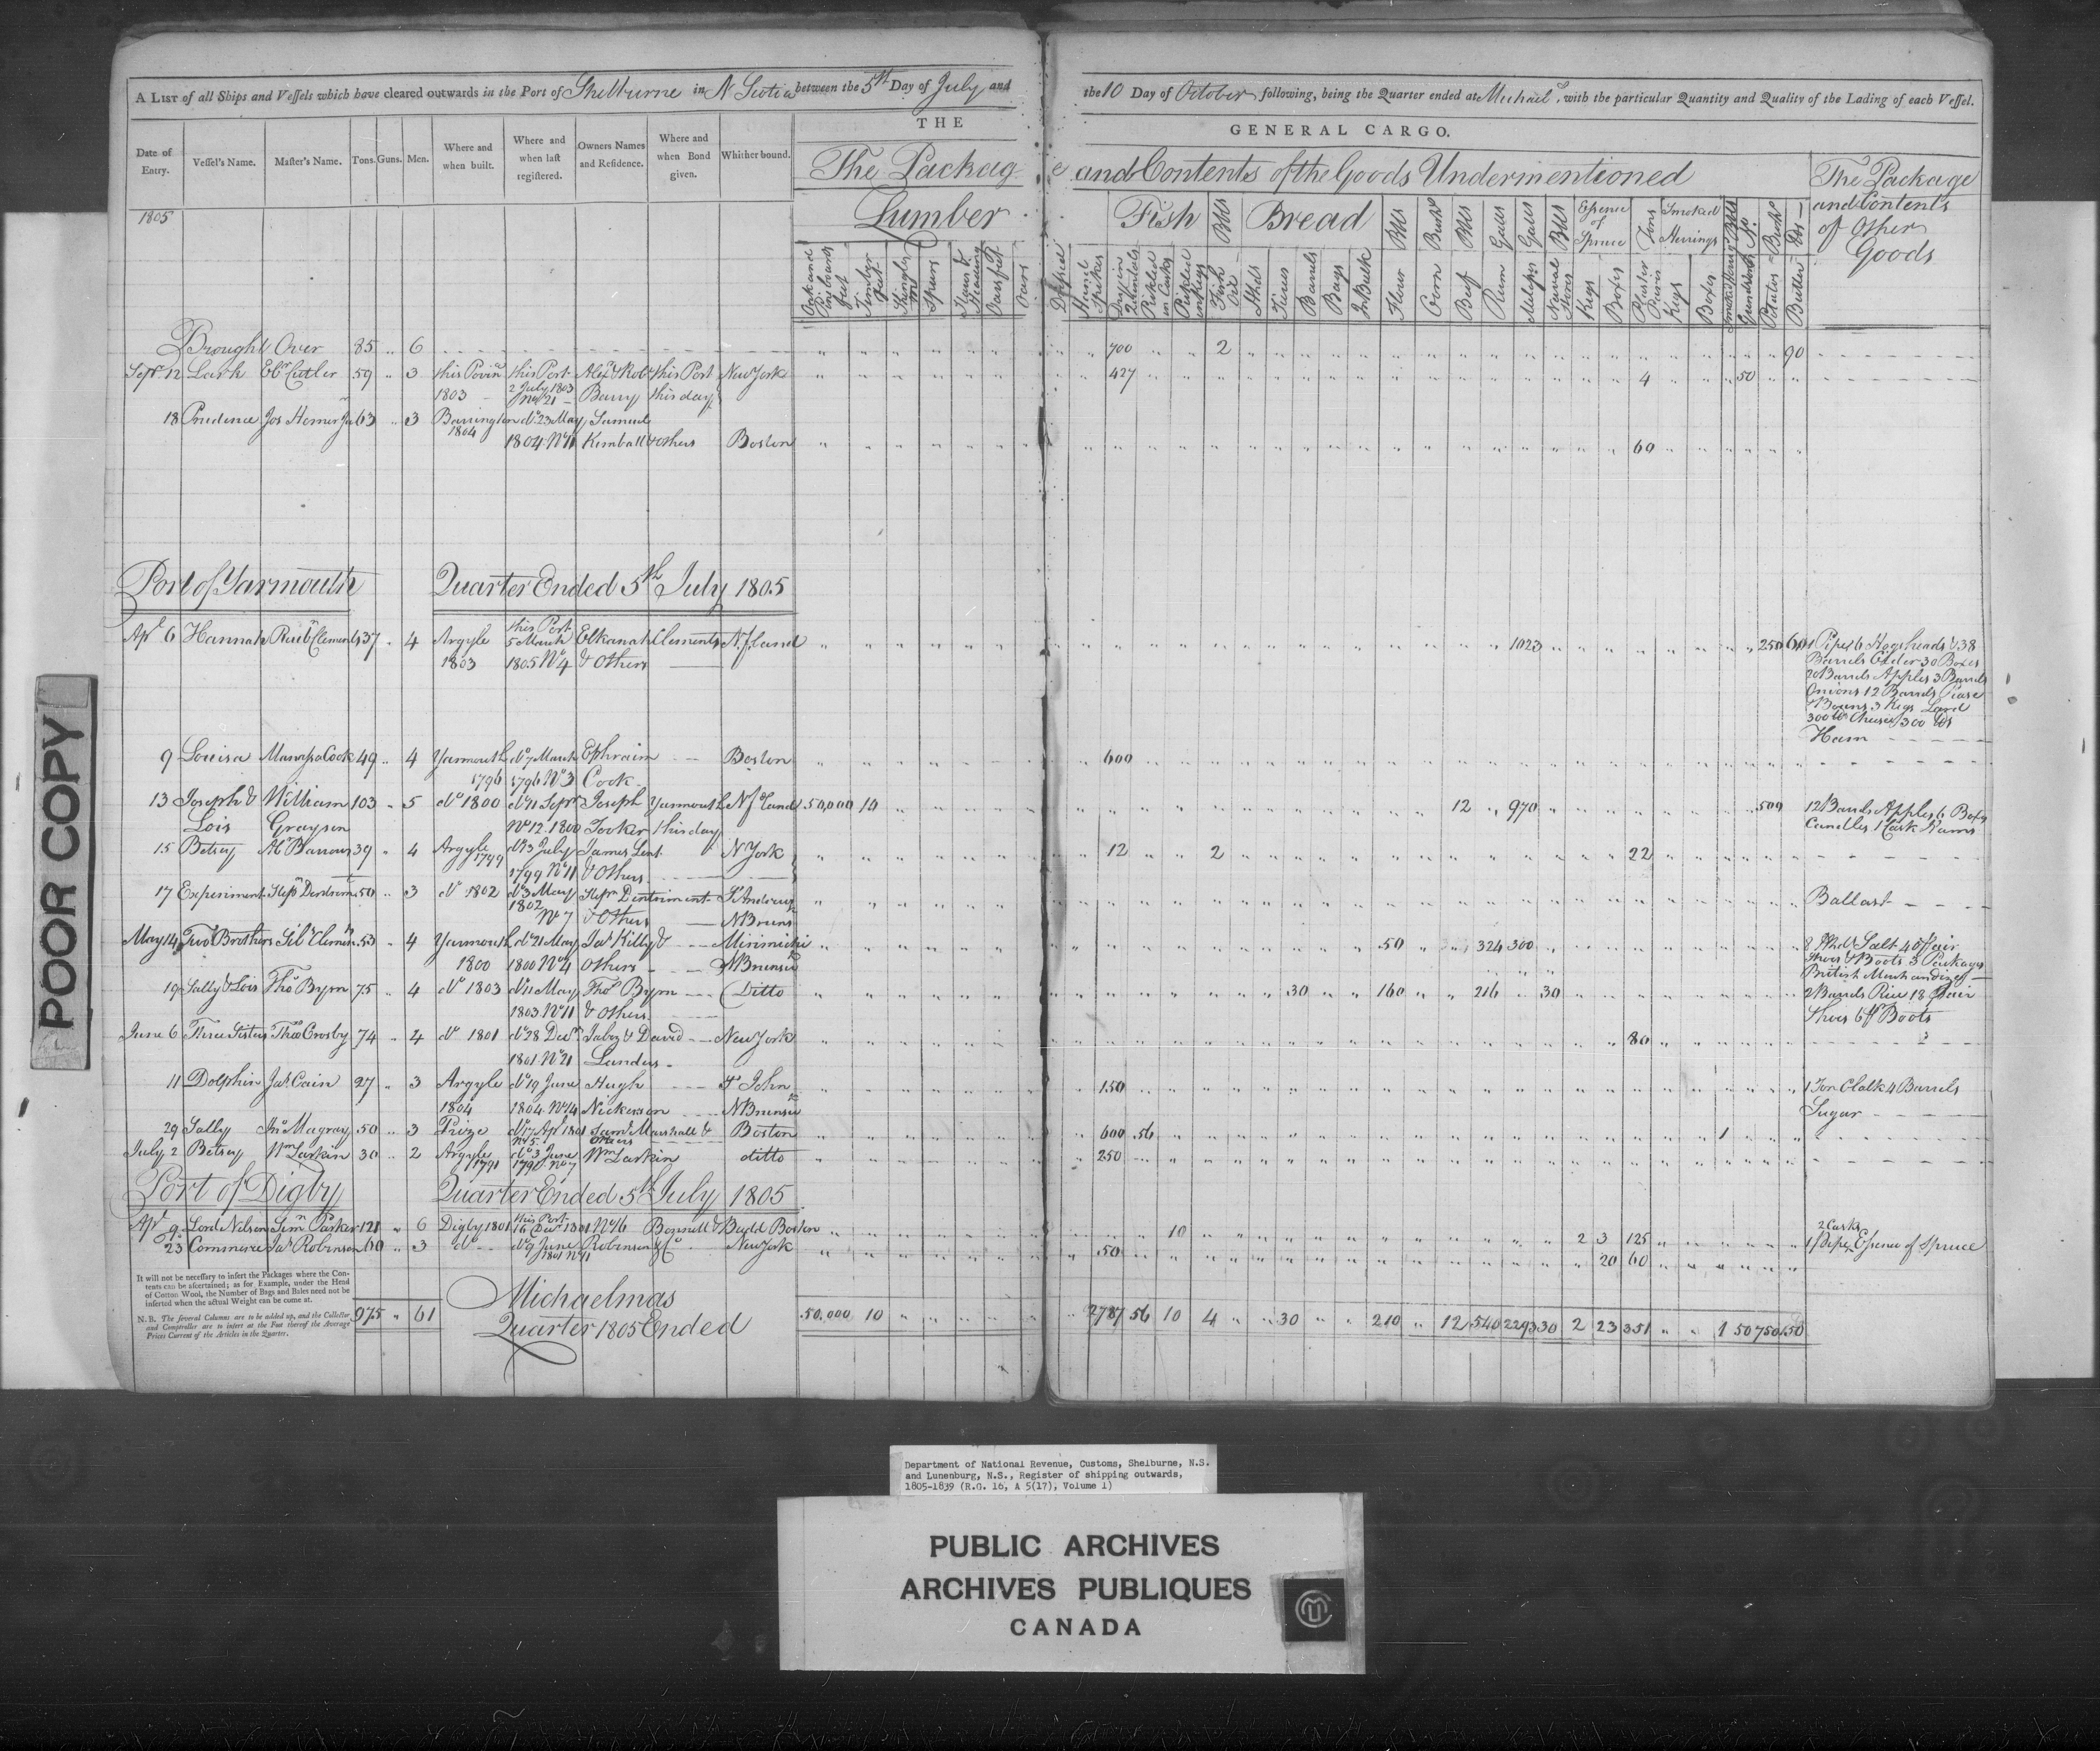 A LIST of all Ships and Vessels which have cleared outwards in the Port of Shelburne in N Scotia between the 5th Day of July and
the 10 Day of October following, being the Quarter ended at Michaels, with the particular Quantity and Quality of the Lading of each Vessel.
THE
GENERAL CARGO.
Date of Entry. Vessel's Name. Master's Name. Tons. Guns. Men. Where and when built. Where and when last registered. Owners Names and Residence. Where and when Bond given. Whither bound.
The Package and Contents of the Goods Undermentioned
The Package and Contents of Other Goods
1805
Lumber
Fish Bbls Bread Bbls Bushs Bbls Galls Galls Bbls Essence of Spruce Tons Smoked Herrings
Timber feet Shingles M Spars Staves & Heading Oars feet Oars
Hand Spikes Dry in Quintals Pickled in Casks Pickled in Kegs Fish Oil Tierces Barrels Bags In Bulk Flour Corn Beef Rum Molasses Naval Stores Kegs Boxes Plaister Paris Kegs Boxes Grindstones Potatoes Butter
Brought Over 85 " 6 700 2 90
Sepr 12 Lark Ebr Cutler 59 " 3 this Povin this Port Alexr & Robt this Port New York 427 4 50
1803 2 July 1803 No 21 Barry this day
18 Prudence Jos Homer Jr 63 " 3 Barrington do 23 May Samuel
1804 1804 No 11 Kimball & others Boston 60
Port of Yarmouth Quarter Ended 5th July 1805
Apl 6 Hannah Reubn Clements 37 " 4 Argyle this Port 5 March Elkanah Clements N.f.land 1023 250 60 1 Pipe 6 Hogsheads & 38
1803 1805 No 4 & Others
Barrels Cider 30 Boxes
20 Barrels Apples 3 Barrels
Onions 12 Barrels Pease
& Beans 3 Kegs Lard
300 lbs Cheese 300 lbs
Ham
9 Louisa Manassa Cook 49 " 4 Yarmouth do 7 March Ephraim Boston 600
1796 1796 No 3 Cook
13 Joseph & William 103 " 5 do 1800 do 11 Sepr Joseph Yarmouth Nfland 50,000 10 12 970 500 12 Barrels Apples 6 Boxes
Lois Grayson No 12 1800 Tooker this day
Candles 1 Cask Hams
15 Betsey Ab Barrows 39 " 4 Argyle 1799 do 13 July James Lent N York 12 2 22
1799 No 11 & Others
17 Experiment 50 " 3 do 1802 do 3 May St Andrews Ballast
1802 No 7 & Others N Bruns
May 14 Two Brothers 53 " 4 Yarmouth do 21 May Jas Kelly & Mirimichi 50 324 300 8 Hhds Salt 40 Pair
1800 1800 No 4 Others N Brunswk
Shoes & Boots 3 Packages
British Merchandize
19 Sally & Lois Thos Byrn 75 " 4 do 1803 do 11 May Thos Byrn Ditto 30 160 216 30 2 Barrels Rice 18 Pair
1803 No 11 & Others
Shoes 6 Pr Boots
June 6 Three Sisters Thos Crosby 74 " 4 do 1801 do 28 Decr Jabez & David New York 80
1801 No 21 Landers
11 Dolphin Jas Cain 27 " 3 Argyle do 19 June Hugh St John 150 1 Ton Chalk 4 Barrels
1804 1804 No 14 Nickerson N Brunswk
Sugar
29 Sally Jno Magray 50 " 3 Prize do 17 Apl 1801 Saml Marshall & Boston 600 56 1
No 5 Others
July 2 Betsey Wm Larkin 30 " 2 Argyle do 3 June Wm Larkin ditto 250
1791 No 7
Port of Digby Quarter Ended 5th July 1805
Apl 9 Lord Nelson Simn Parker 121 " 6 Digby 1801 this Port 16 Decr 1801 No 16 Bonnell & Budd Boston 10 2 3 125
2 Casks
23 Commerce Jas Robinson 60 " 3 do do 9 June Robinson & Co New York 50 20 60 1 Pipe Essence of Spruce
1801 No 11
It will not be necessary to insert the Packages where the Contents can be ascertained; as for Example, under the Head of Cotton Wool, the Number of Bags and Bales need not be inserted when the actual Weight can be come at.
N. B. The several Columns are to be added up, and the Collector and Comptroller are to insert at the Foot thereof the Average Prices Current of the Articles in the Quarter.
975 " 61
Michaelmas
Quarter 1805 Ended
50,000 10 2787 56 10 4 30 210 12 540 2293 30 2 23 351 1 50 750 150
POOR COPY
Department of National Revenue, Customs, Shelburne, N.S.
and Lunenburg, N.S., Register of shipping outwards,
1805-1839 (R.G. 16, A 5(17), Volume 1)
PUBLIC ARCHIVES
ARCHIVES PUBLIQUES
CANADA